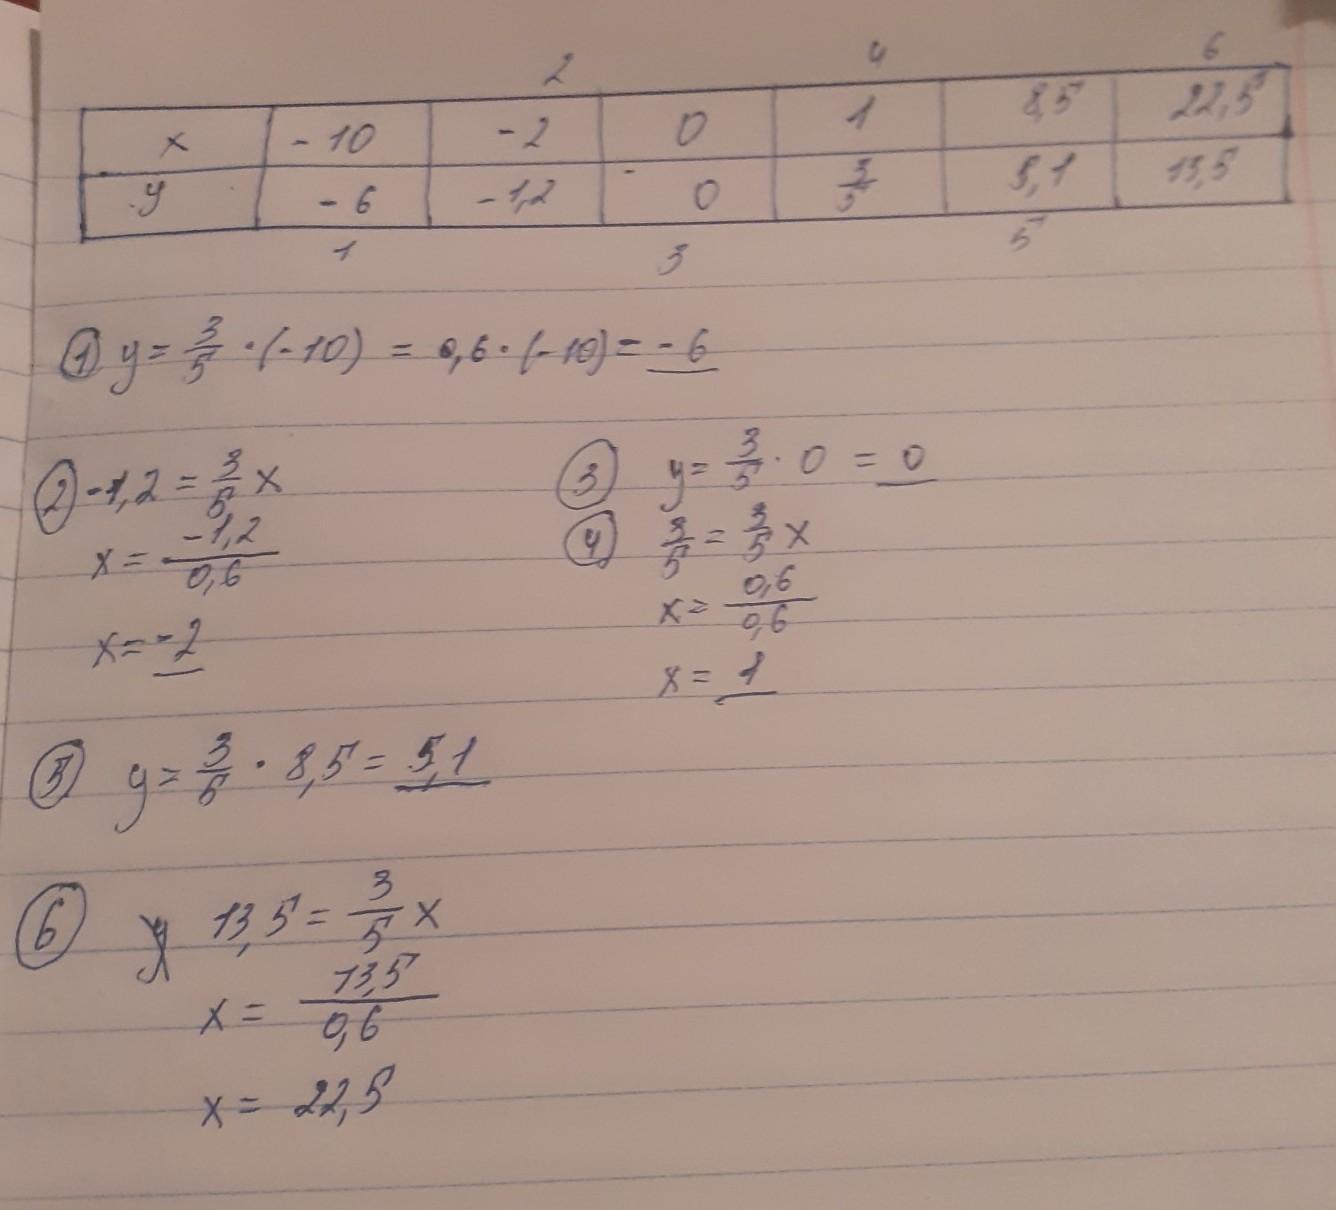 2 4 6
x -10 -2 0 1 8,5 22,5
y -6 -1,2 0 3/5 5,1 13,5
1 3 5
① y = 3/5 · (-10) = 0,6 · (-10) = -6
② -1,2 = 3/5 x
x = -1,2/0,6
x = -2
③ y = 3/5 · 0 = 0
④ 3/5 = 3/5 x
x = 0,6/0,6
x = 1
⑤ y = 3/5 · 8,5 = 5,1
⑥ y 13,5 = 3/5 x
x = 13,5/0,6
x = 22,5